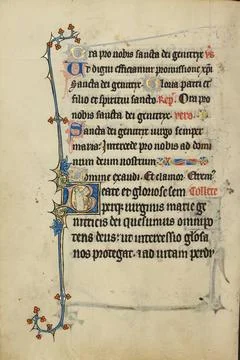 Ora pro nobis sancta dei genitrix vs
Ut digni efficiamur promissione xpi
Sancta dei genitrix Gloria patri et
filio et spiritui sancto. Resp. Ora pro
nobis sancta dei genitrix. vers.
Sancta dei genitrix virgo semper
maria. Intercede pro nobis ad domi
num deum nostrum.
Domine exaudi. Et clamor. Orem
Beate et gloriose sem Collecte
perqz virginis marie ge
nitricis dei quesumus omnipo
tens deus: ut intercessio glosa
nos protegat. et ad vitam perdu